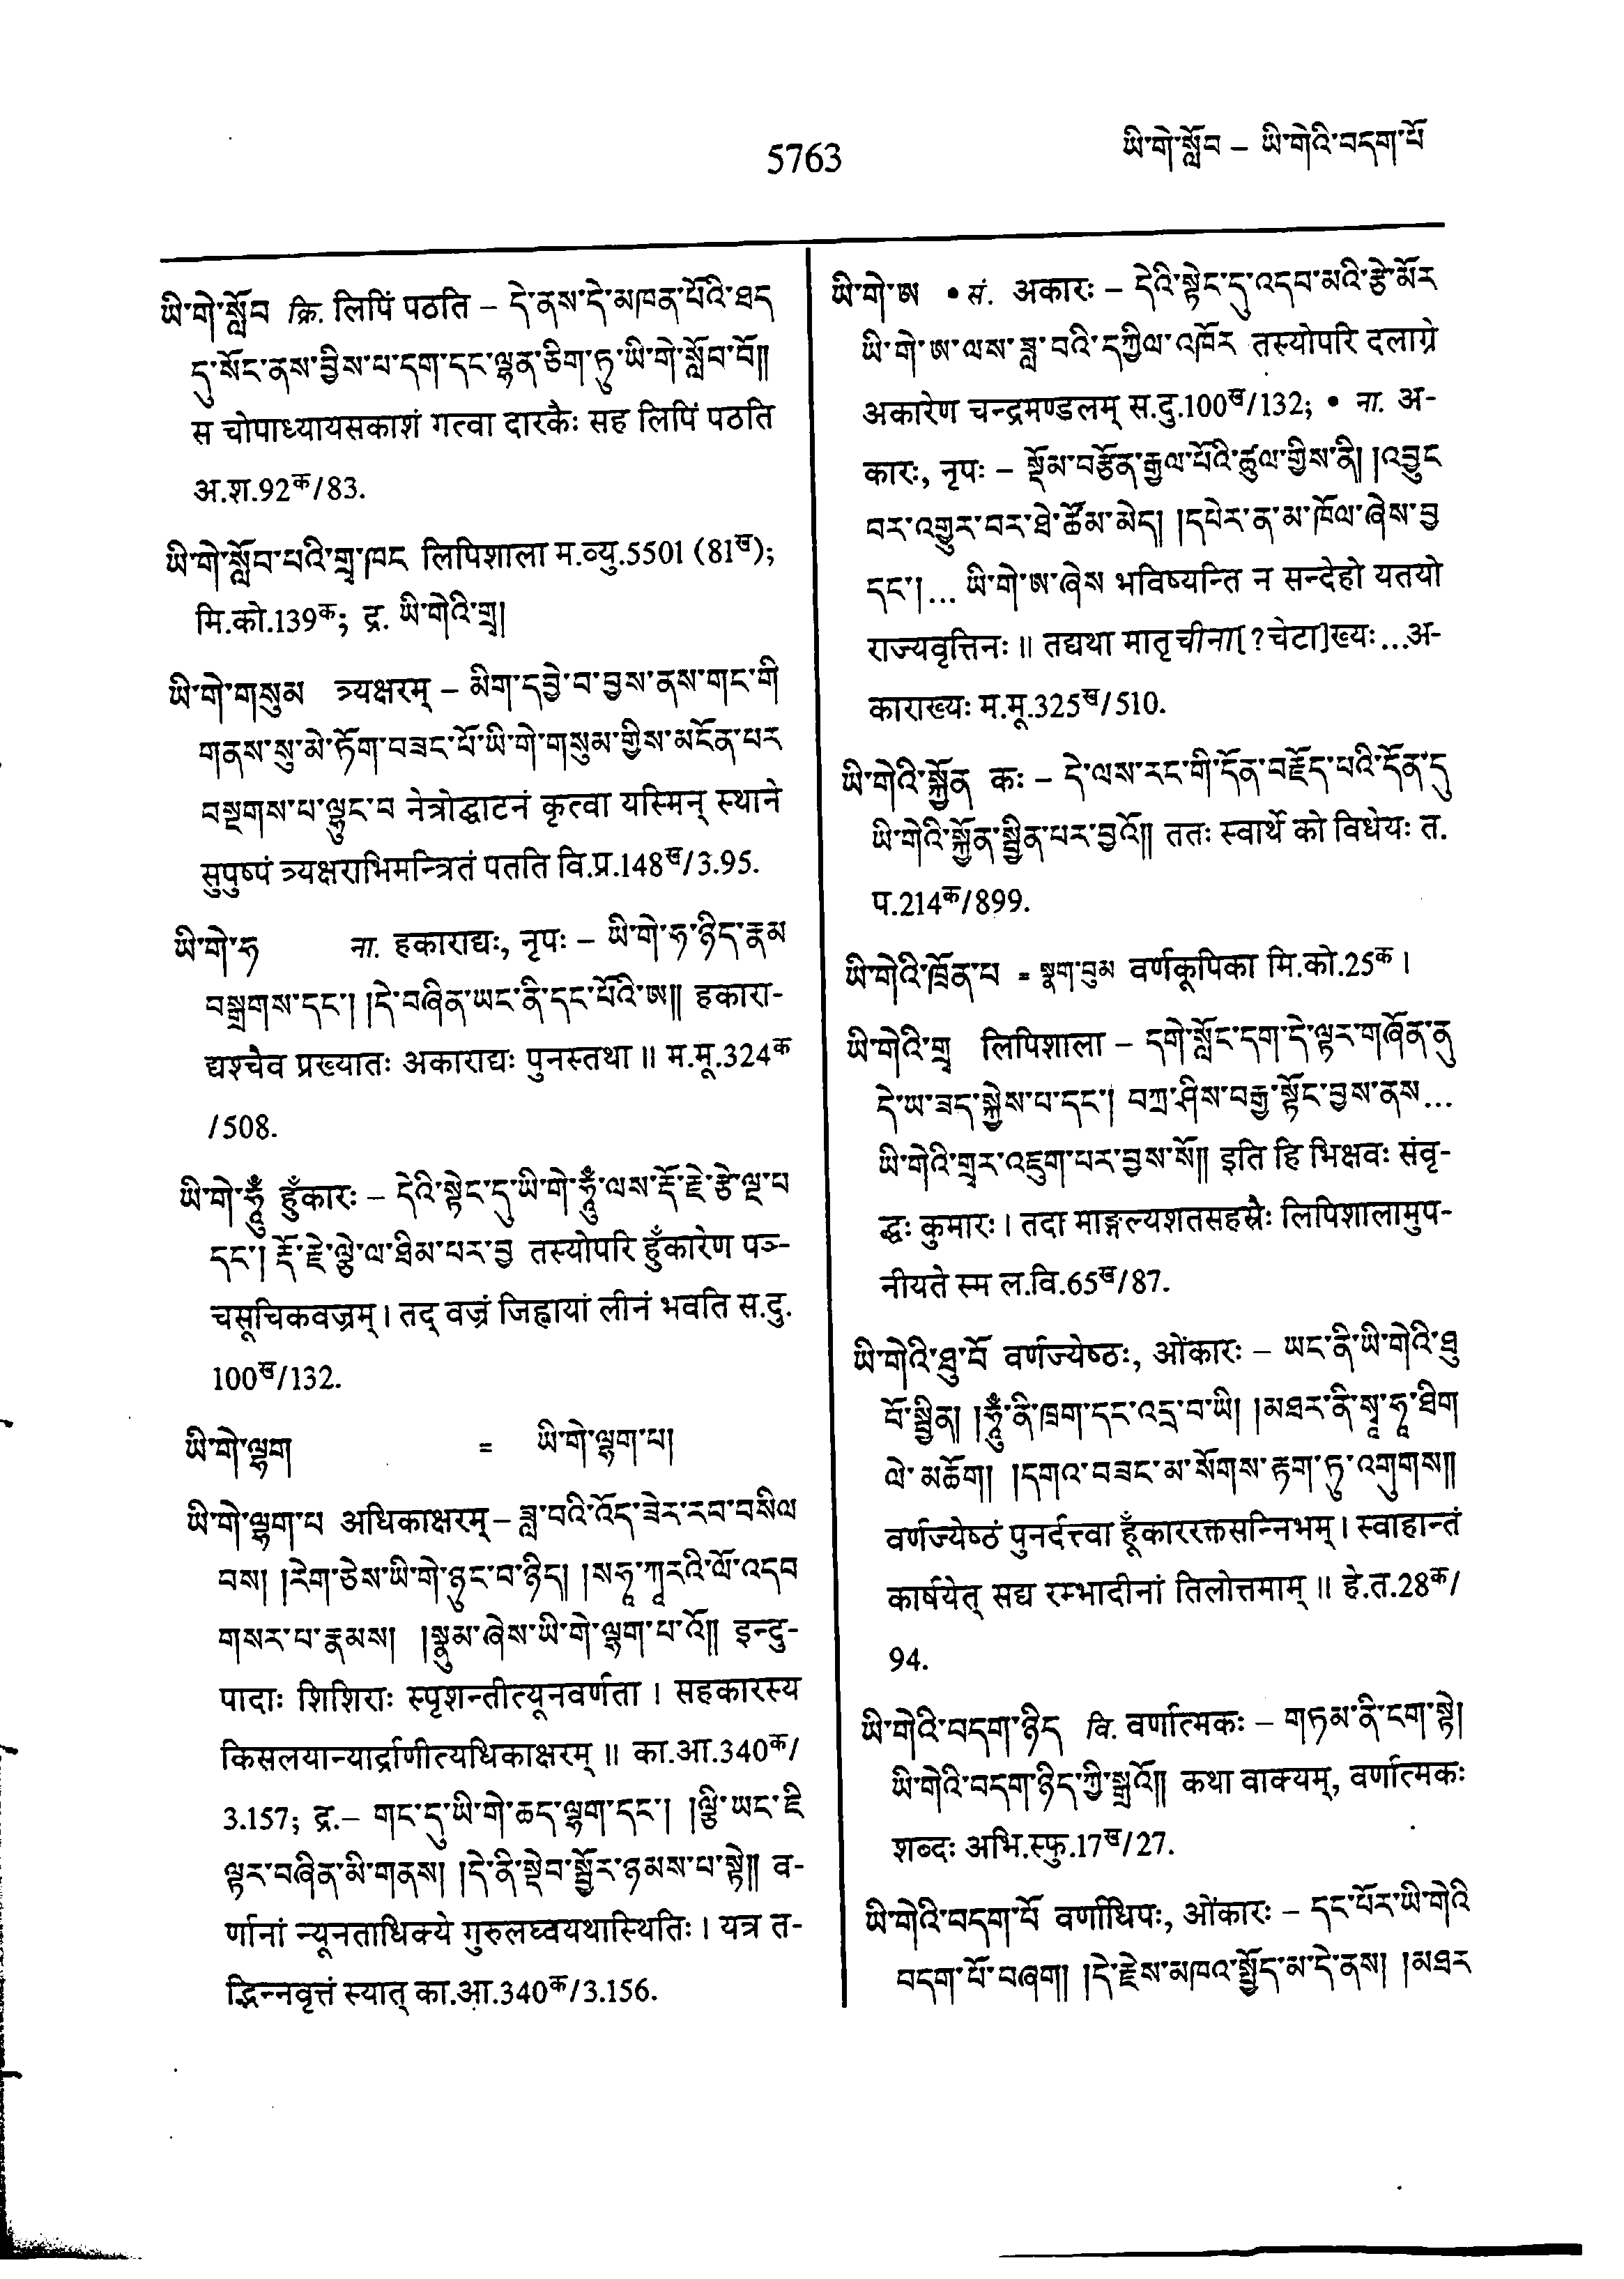 5763
ཡི་གེ་སློབ – ཡི་གེའི་བདག་པོ
ཡི་གེ་སློབ क्रि. लिपिं पठति – དེ་ནས་དེ་མཁན་པོའི་ཐད
དུ་སོང་ནས་བྱིས་པ་དག་དང་ལྷན་ཅིག་ཏུ་ཡི་གེ་སློབ་བོ༎
स चोपाध्यायसकाशं गत्वा दारकैः सह लिपिं पठति
अ.श.92क/83.
ཡི་གེ་སློབ་པའི་གྲྭ་ཁང लिपिशाला म.व्यु.5501 (81ख);
मि.को.139क; द्र. ཡི་གེའི་གྲྭ།
ཡི་གེ་གསུམ त्र्यक्षरम् – མིག་དབྱེ་བ་བྱས་ནས་གང་གི
གནས་སུ་མེ་ཏོག་བཟང་པོ་ཡི་གེ་གསུམ་གྱིས་མངོན་པར
བསྔགས་པ་ལྷུང་བ नेत्रोद्घाटनं कृत्वा यस्मिन् स्थाने
सुपुष्पं त्र्यक्षराभिमन्त्रितं पतति वि.प्र.148ख/3.95.
ཡི་གེ་ཧ ना. हकाराद्यः, नृपः – ཡི་གེ་ཧ་ཉིད་རྣམ
བསྒྲགས་དང་། །དེ་བཞིན་ཡང་ནི་དང་པོའི་ཨ༎ हकारा-
द्यश्चैव प्रख्यातः अकाराद्यः पुनस्तथा ॥ म.मू.324क
/508.
ཡི་གེ་ཧཱུྃ हुँकारः – དེའི་སྟེང་དུ་ཡི་གེ་ཧཱུྃ་ལས་རྡོ་རྗེ་རྩེ་ལྔ་པ
དང་། རྡོ་རྗེ་ལྕེ་ལ་ཐིམ་པར་བྱ तस्योपरि हुँकारेण पञ्-
चसूचिकवज्रम्। तद् वज्रं जिह्वायां लीनं भवति स.दु.
100ख/132.
ཡི་གེ་ལྷག = ཡི་གེ་ལྷག་པ།
ཡི་གེ་ལྷག་པ अधिकाक्षरम् – ཟླ་བའི་འོད་ཟེར་རབ་བསིལ
བས། །རེག་ཅེས་ཡི་གེ་ཉུང་བ་ཉིད། །སཧཱ་ཀཱརའི་ལོ་འདབ
གསར་པ་རྣམས། །སྣུམ་ཞེས་ཡི་གེ་ལྷག་པ་འོ༎ इन्दु-
पादाः शिशिराः स्पृशन्तीत्यूनवर्णता । सहकारस्य
किसलयान्यार्द्राणीत्यधिकाक्षरम् ॥ का.आ.340क/
3.157; द्र.– གང་དུ་ཡི་གེ་ཆད་ལྷག་དང་། །ལྕི་ཡང་ཇི
ལྟར་བཞིན་མི་གནས། །དེ་ནི་སྡེབ་སྦྱོར་ཉམས་པ་སྟེ༎ व-
र्णानां न्यूनताधिक्ये गुरुलघ्वयथास्थितिः । यत्र त-
द्भिन्नवृत्तं स्यात् का.आ.340क/3.156.
ཡི་གེ་ཨ • सं. अकारः – དེའི་སྟེང་དུ་འདབ་མའི་རྩེ་མོར
ཡི་གེ་ཨ་ལས་ཟླ་བའི་དཀྱིལ་འཁོར तस्योपरि दलाग्रे
अकारेण चन्द्रमण्डलम् स.दु.100ख/132; • ना. अ-
कारः, नृपः – སྡོམ་བརྩོན་རྒྱལ་པོའི་ཚུལ་གྱིས་ནི། །འབྱུང
བར་འགྱུར་བར་ཐེ་ཚོམ་མེད། །དཔེར་ན་མ་ཁོལ་ཞེས་བྱ
དང་།... ཡི་གེ་ཨ་ཞེས भविष्यन्ति न सन्देहो यतयो
राज्यवृत्तिनः ॥ तद्यथा मातृचीना[?चेटा]ख्यः...अ-
काराख्यः म.मू.325ख/510.
ཡི་གེའི་སྐྱོན कः – དེ་ལས་རང་གི་དོན་བརྗོད་པའི་དོན་དུ
ཡི་གེའི་སྐྱོན་སྦྱིན་པར་བྱའོ༎ ततः स्वार्थे को विधेयः त.
प.214क/899.
ཡི་གེའི་ཁྲོན་པ = སྣག་བུམ वर्णकूपिका मि.को.25क।
ཡི་གེའི་གྲྭ लिपिशाला – དགེ་སློང་དག་དེ་ལྟར་གཞོན་ནུ
དེ་ཡ་ཟད་སྐྱེས་པ་དང་། བཀྲ་ཤིས་བརྒྱ་སྟོང་བྱས་ནས...
ཡི་གེའི་གྲྭར་འཇུག་པར་བྱས་སོ༎ इति हि भिक्षवः संवृ-
द्धः कुमारः। तदा माङ्गल्यशतसहस्रैः लिपिशालामुप-
नीयते स्म ल.वि.65ख/87.
ཡི་གེའི་ཐུ་བོ वर्णज्येष्ठः, ओंकारः – ཡང་ནི་ཡི་གེའི་ཐུ
བོ་སྦྱིན། །ཧཱུྃ་ནི་ཁྲག་དང་འདྲ་བ་ཡི། །མཐར་ནི་སྭཱ་ཧཱ་ཐིག
ལེ་མཆོག། །དགའ་བཟང་མ་སོགས་རྟག་ཏུ་འགུགས༎
वर्णज्येष्ठं पुनर्दत्त्वा हूँकाररक्तसन्निभम्। स्वाहान्तं
कार्षयेत् सद्य रम्भादीनां तिलोत्तमाम् ॥ हे.त.28क/
94.
ཡི་གེའི་བདག་ཉིད वि. वर्णात्मकः – གཏམ་ནི་ངག་སྟེ།
ཡི་གེའི་བདག་ཉིད་ཀྱི་སྒྲའོ༎ कथा वाक्यम्, वर्णात्मकः
शब्दः अभि.स्फु.17ख/27.
ཡི་གེའི་བདག་པོ वर्णाधिपः, ओंकारः – དང་པོར་ཡི་གེའི
བདག་པོ་བཞག། །དེ་རྗེས་མཁའ་སྤྱོད་མ་དེ་ནས། །མཐར